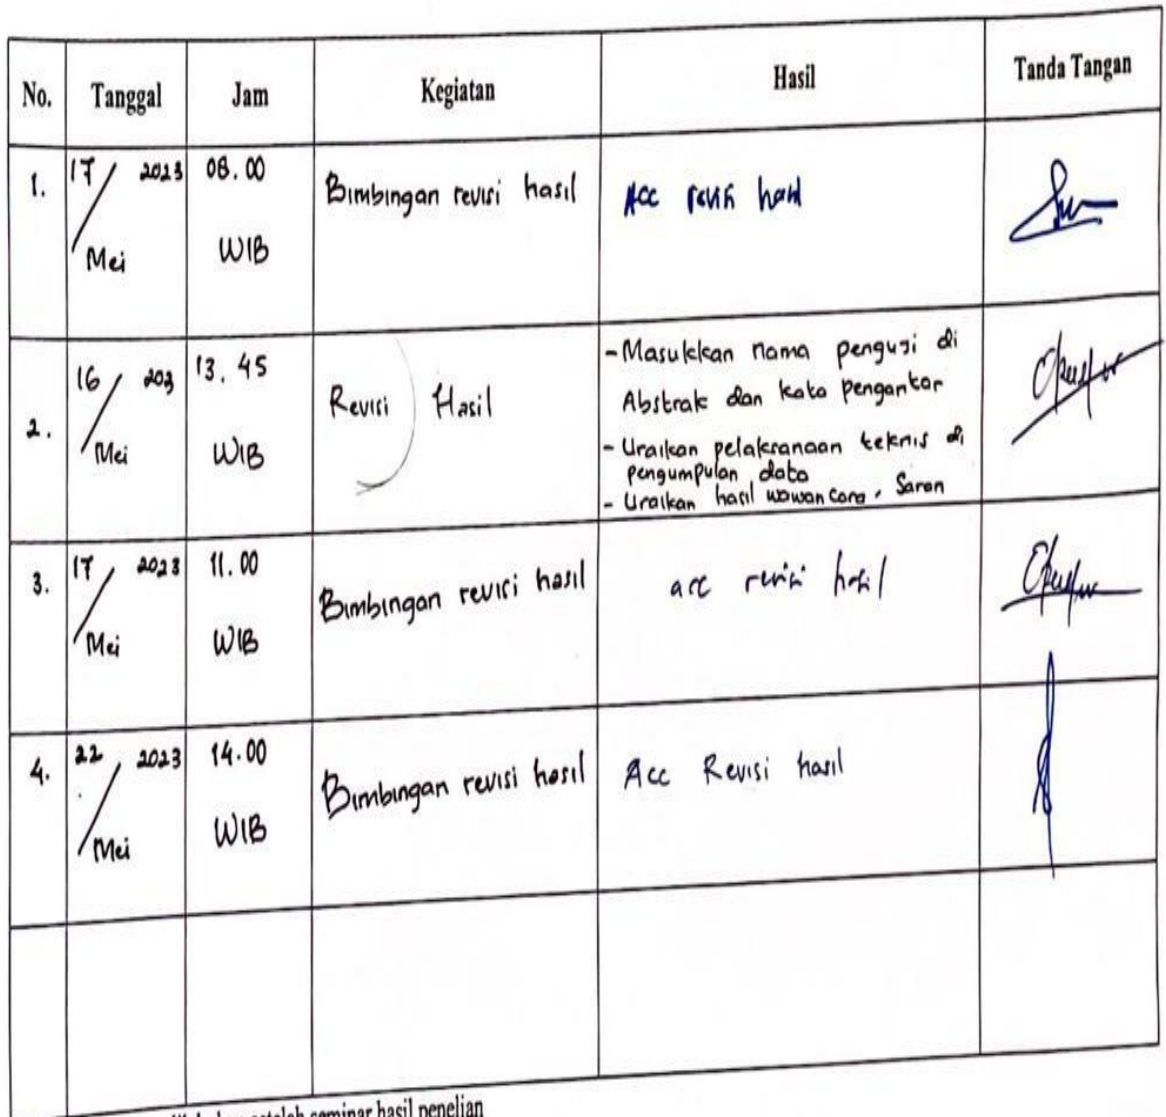 No. Tanggal Jam Kegiatan Hasil Tanda Tangan
1. 17/Mei 2023 08.00 WIB Bimbingan revisi hasil Acc revisi hasil
2. 16/Mei 202 13.45 WIB Revisi Hasil
- Masukkan nama penguji di
Abstrak dan kata pengantar
- Uraikan pelaksanaan teknis di
pengumpulan data
- Uraikan hasil wawancara, Saran
3. 17/Mei 2023 11.00 WIB Bimbingan revisi hasil acc revisi hasil
4. 22/Mei 2023 14.00 WIB Bimbingan revisi hasil Acc Revisi hasil
setelah seminar hasil penelian